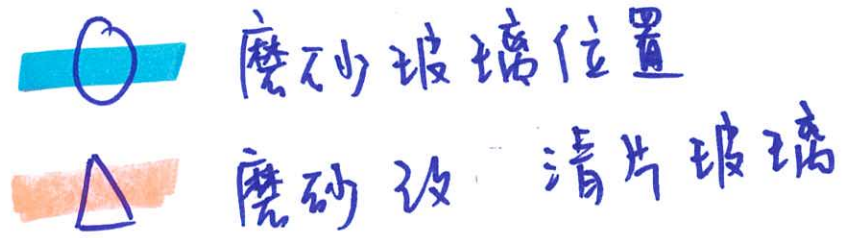 磨砂玻璃位置
磨砂改 清片玻璃